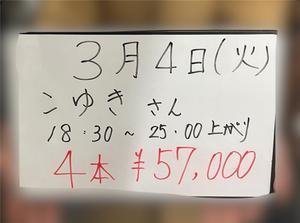 3月4日(火)
こゆき さん
18:30~25:00上がり
4本 ¥57,000